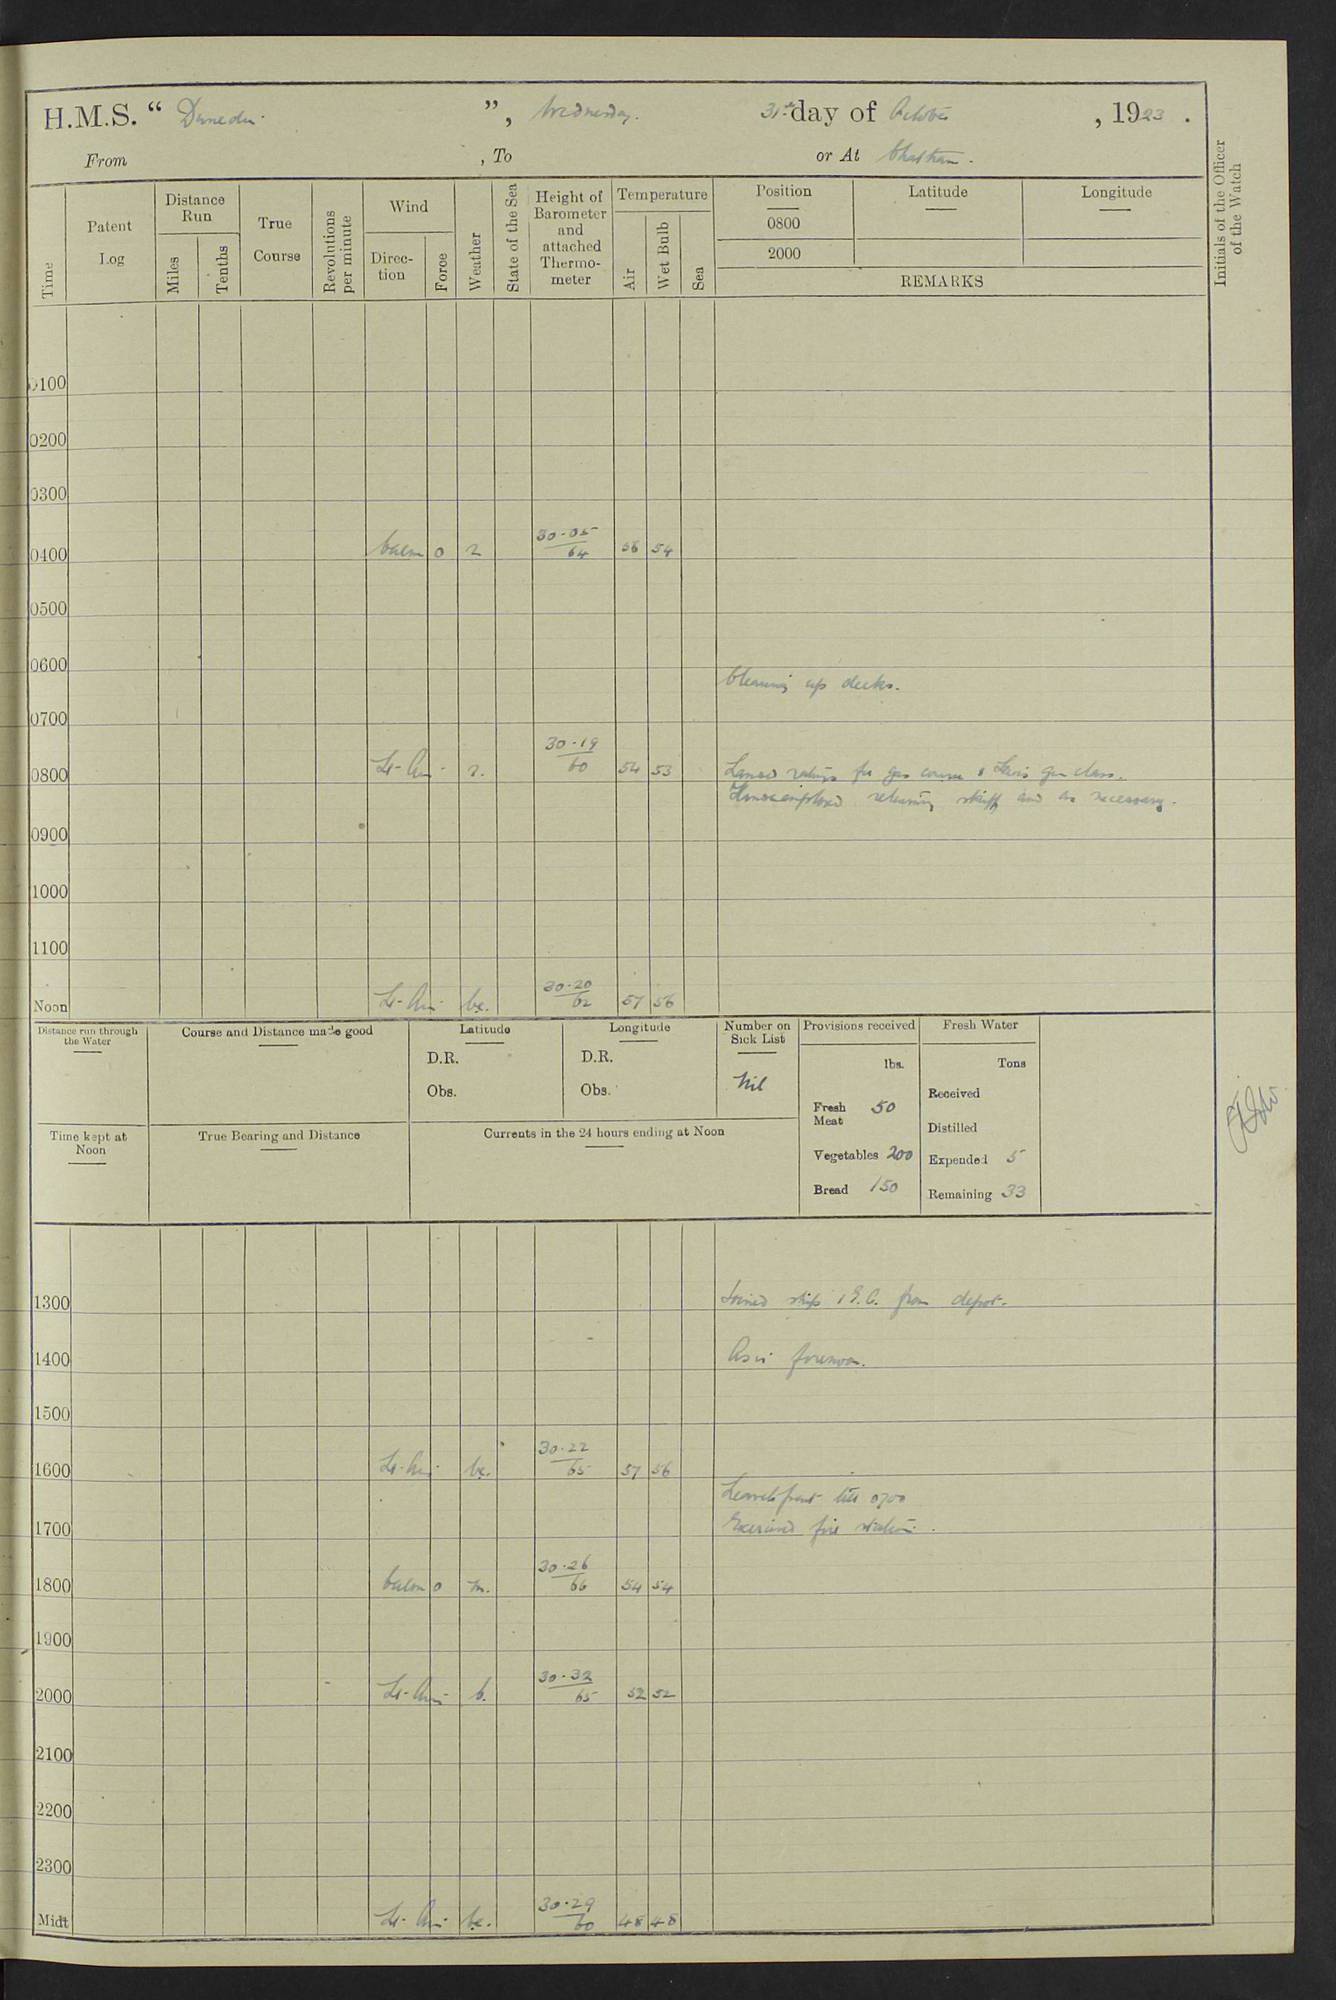 H.M.S. “ Dunedin ”, Wednesday. 31st day of October, 1923.
From , To or At Chatham.
Time
Patent Log
Distance Run
Miles
Tenths
True Course
Revolutions per minute
Wind
Direction
Force
Weather
State of the Sea
Height of Barometer and attached Thermometer
Temperature
Air
Wet Bulb
Sea
Position
Latitude
Longitude
0800
2000
REMARKS
Initials of the Officer of the Watch
0100
0200
0300
0400 Calm 0 r 30.05/64 56 54
0500
0600
Cleaning up decks.
0700
0800 Lt. Airs r. 30.19/60 54 53 Landed ratings for gas course & Lewis gun class.
Hands employed returning stuff and as necessary.
0900
1000
1100
Noon Lt. Airs bc. 30.20/62 57 56
Distance run through the Water
Course and Distance made good
Latitude
D.R.
Obs.
Longitude
D.R.
Obs.
Number on Sick List
Nil
Provisions received
lbs.
Fresh Meat 50
Vegetables 200
Bread 150
Fresh Water
Tons
Received
Distilled
Expended 5
Remaining 33
Time kept at Noon
True Bearing and Distance
Currents in the 24 hours ending at Noon
1300 Joined ship 1 from depot.
1400 As in forenoon.
1500
1600 Lt. Airs bc. 30.22/65 57 56
Leave to part till 0700
1700 Exercised fire stations.
1800 Calm 0 m. 30.26/66 54 54
1900
2000 Lt. Airs b. 30.32/65 52 52
2100
2200
2300
Midt Lt. Airs bc. 30.29/60 48 48